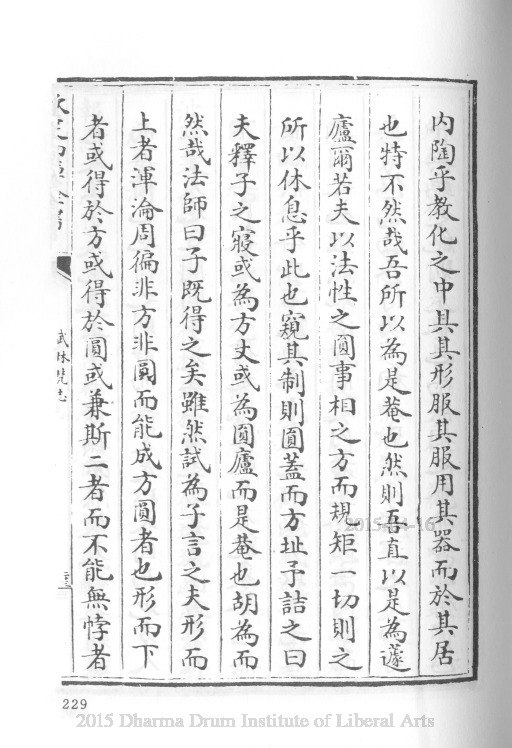 内陶乎教化之中具其形服其服用其器而於其居
也特不然哉吾所以為是菴也然則吾直以是為蘧
廬爾若夫以法性之圓事相之方而規矩一切則之
所以休息乎此也窺其制則圓蓋而方址予詰之曰
夫釋子之寢或為方丈或為圓廬而是菴也胡為而
然哉法師曰子既得之矣雖然試為子言之夫形而
上者渾淪周徧非方非圓而能成方圓者也形而下
者或得於方或得於圓或兼斯二者而不能無悖者
武林梵志
229
2015 Dharma Drum Institute of Liberal Arts